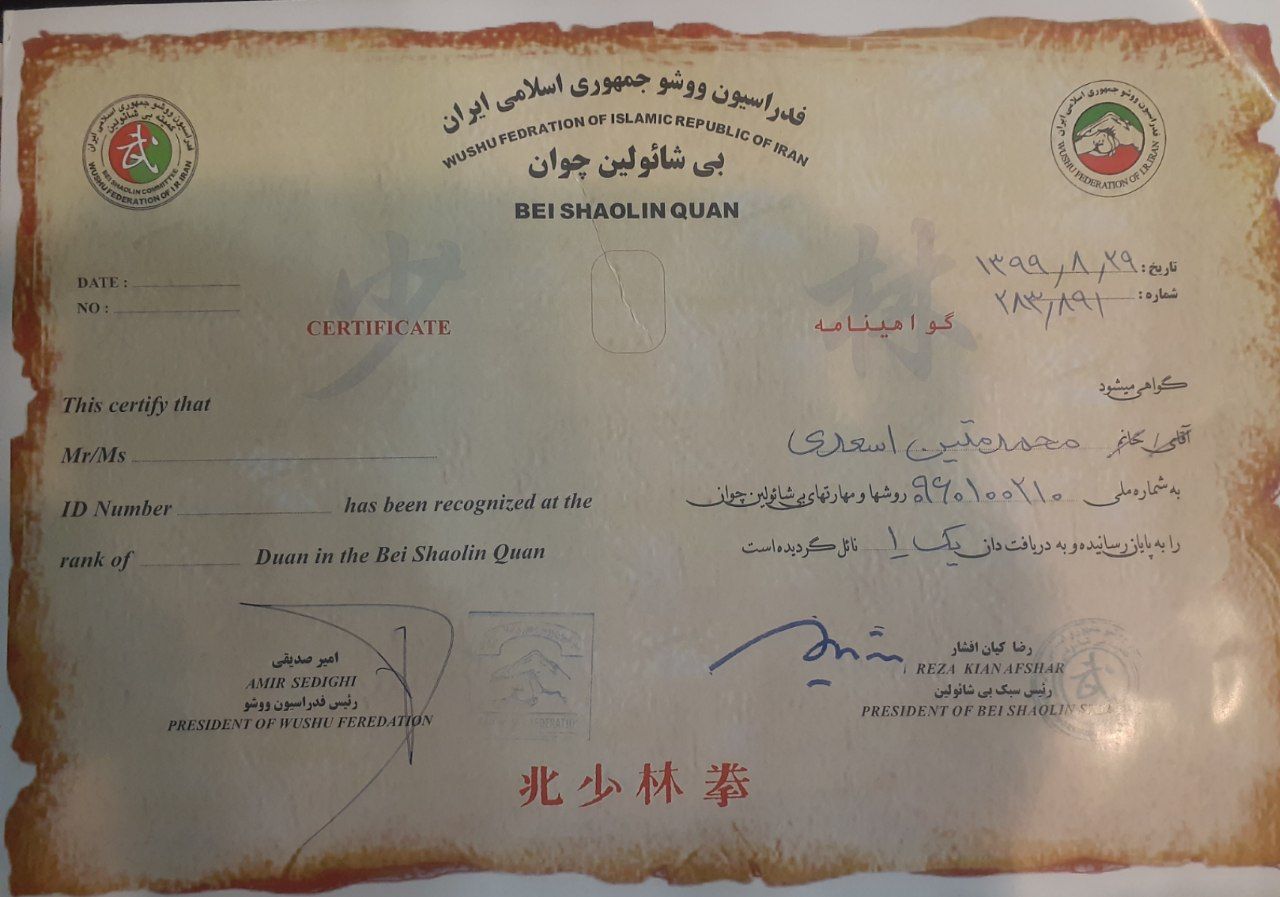 فدراسیون ووشو جمهوری اسلامی ایران
WUSHU FEDRATION OF ISLAMIC REPUBLIC OF IRAN
بی شائولین چوان
BEI SHAOLIN QUAN
فدراسیون ووشو جمهوری اسلامی ایران
کمیته بی شائولین
BEI SHAOLIN COMMITTEE
WUSHU FEDERATION OF I.R.IRAN
فدراسیون ووشو جمهوری اسلامی ایران
WUSHU FEDERATION OF I.R.IRAN
少林
DATE :
NO :
CERTIFICATE
This certify that
Mr/Ms
ID Number has been recognized at the
rank of Duan in the Bei Shaolin Quan
تاریخ: ۱۳۹۹/۸/۲۹
شماره: ۲۸۳/۸۹۱
گواهینامه
گواهی میشود
آقای/خانم محمد متین اسعدی
به شماره ملی ۰۹۶۰۱۰۰۲۱۰ روشها و مهارتهای بی شائولین چوان
را به پایان رسانیده و به دریافت دان یک ۱ نائل گردیده است
امیر صدیقی
AMIR SEDIGHI
رئیس فدراسیون ووشو
PRESIDENT OF WUSHU FEREDATION
رضا کیان افشار
REZA KIAN AFSHAR
رئیس سبک بی شائولین
PRESIDENT OF BEI SHAOLIN
兆少林拳